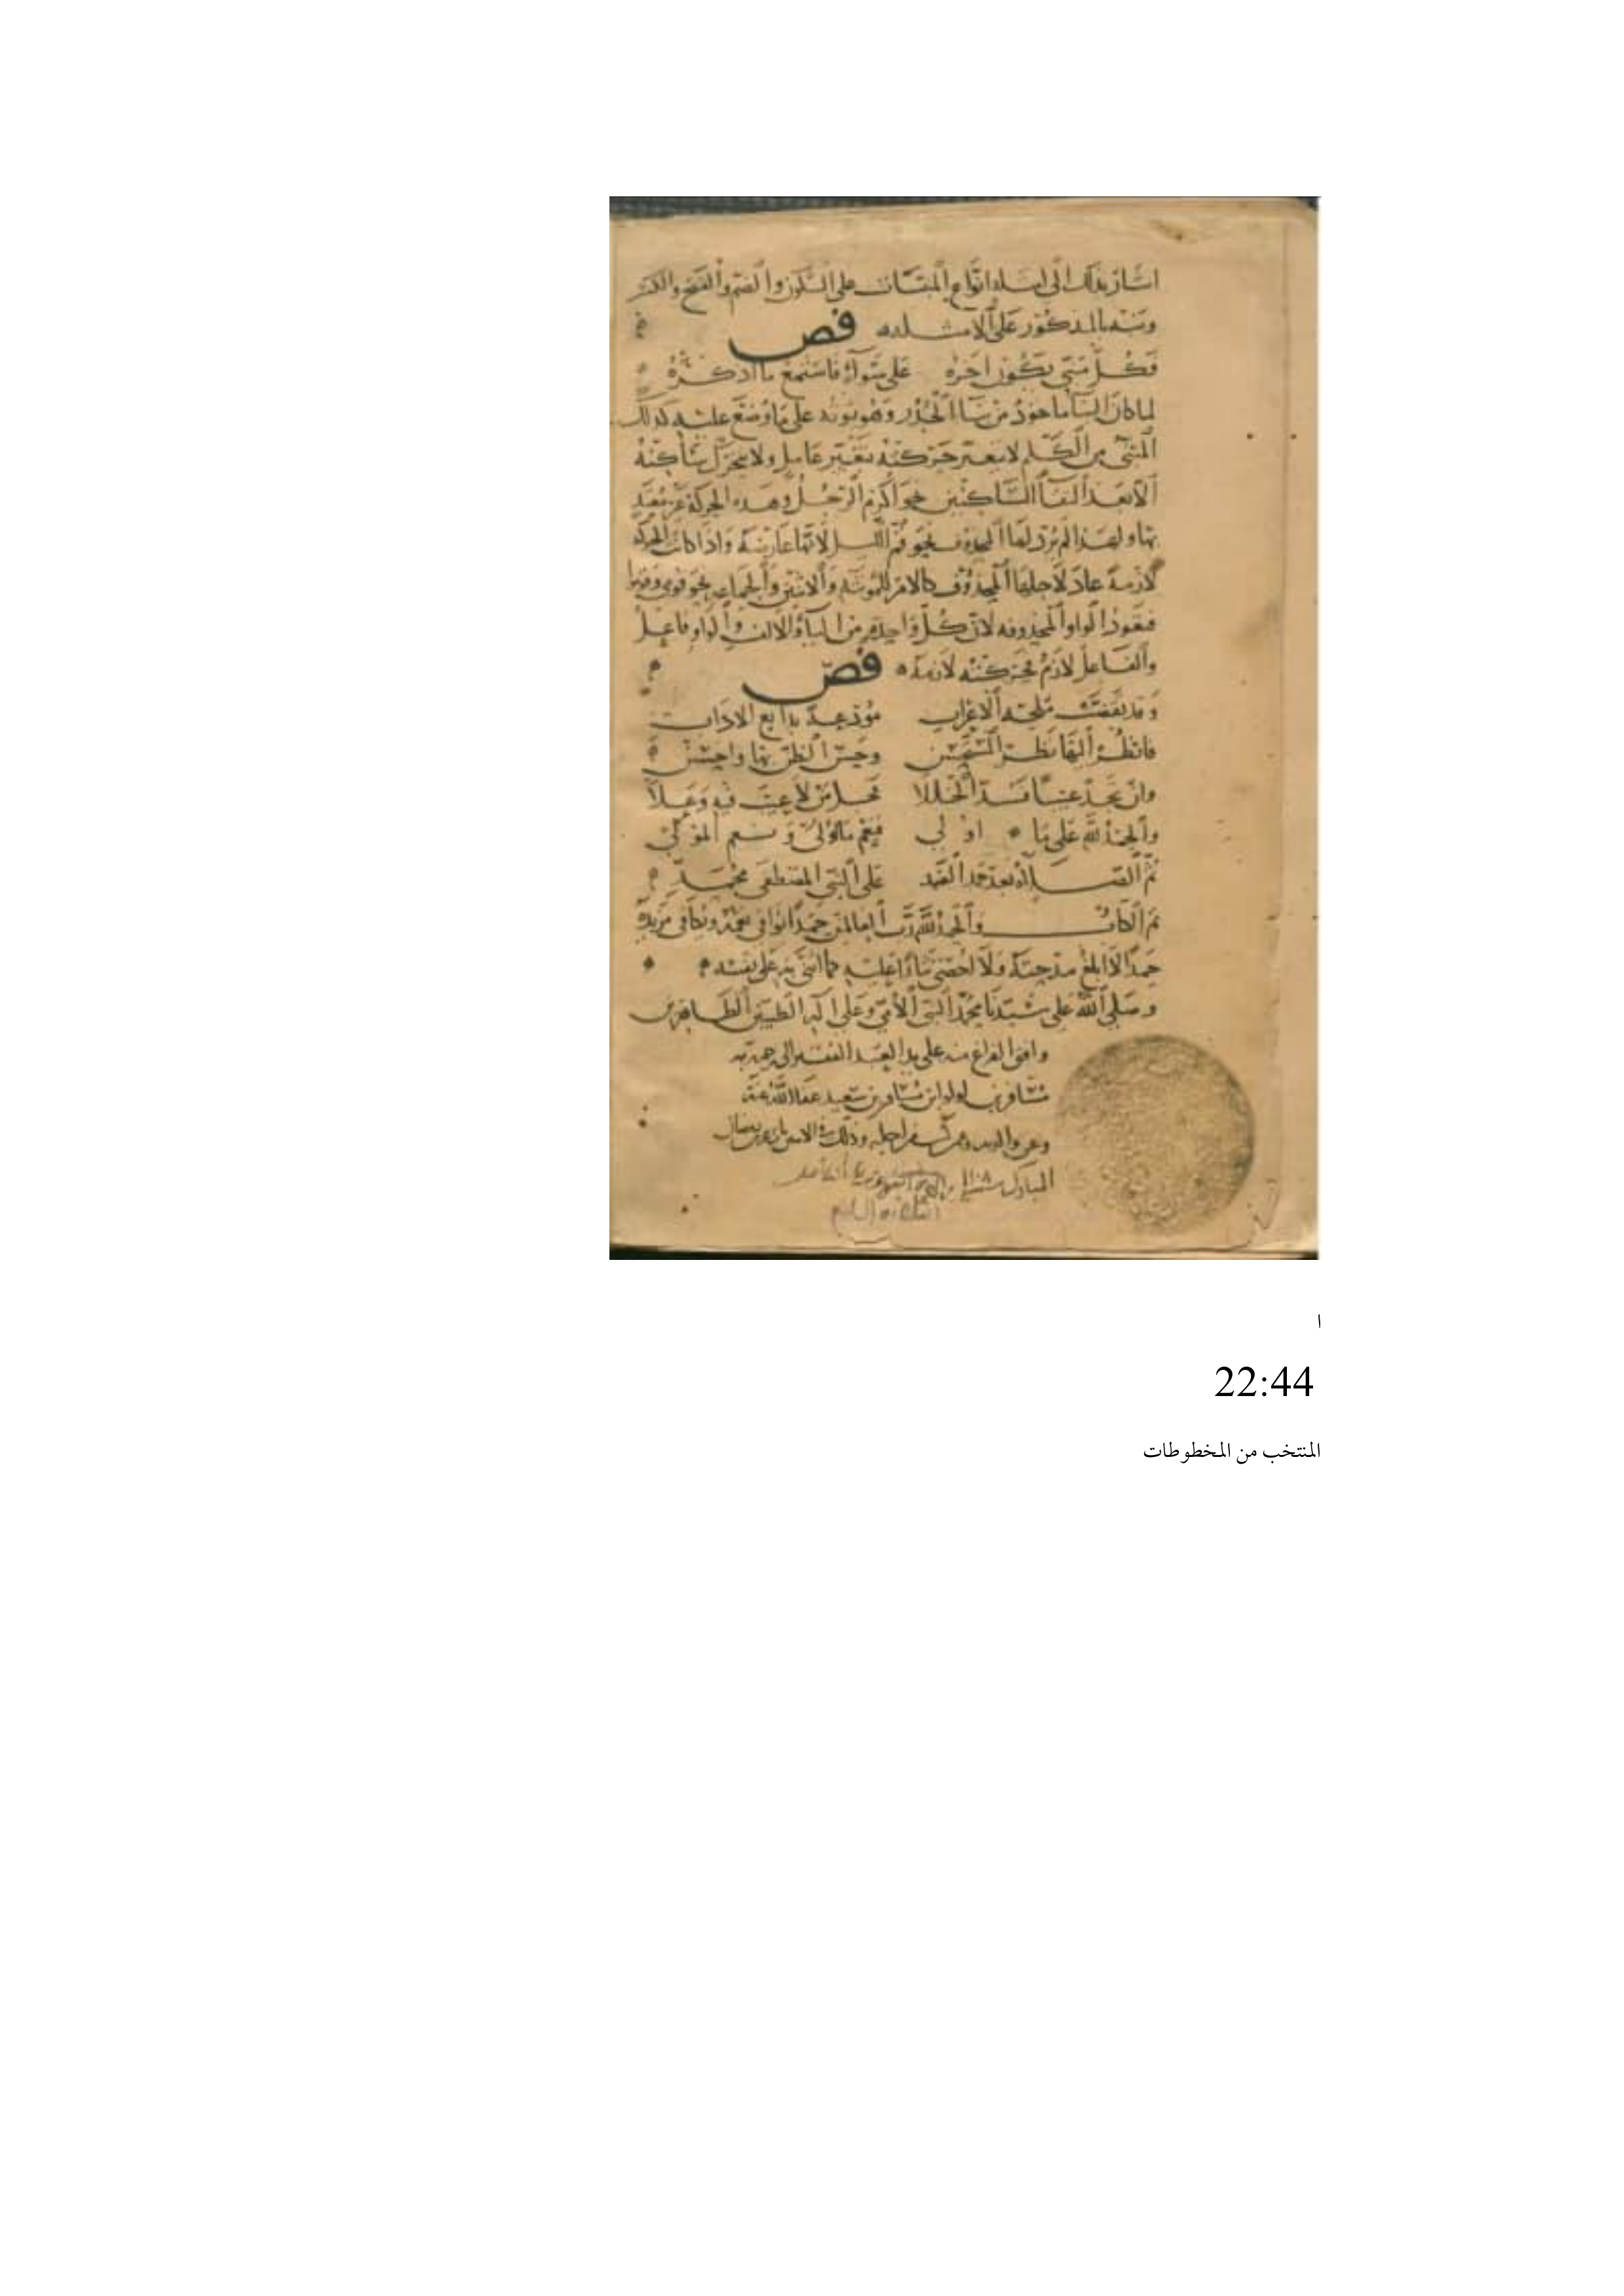 اشار بذلك الى امثلة انواع المبنيات على السكون والضم والفتح والكسر
ونبه بالمذكور على الامثلة فص
فكل مبني يكون اخره على سواء فاستمع ما اذكره
لما كان البنا ماخوذ من بنا الجدر وهو ثبوته على ما وضع عليه كذلك
المبني من الكلم لا يتغير حركته بتغير عامل ولا يتحرك ساكنه
الا بعد التقا الساكنين نحو اكرم الرجل وهذه الحركة غير معتد
بها ولهذا لم ترد لها المحذوف نحو قم الليل لانها عارضة واذا كانت الحركة
لازمة عاد لاجلها المحذوف كالامر للمونثة والاثنين والجماعة نحو قومي وقوما
فتعود الواو المحذوفة لان كل واحدة من الياء والالف والواو فاعل
والفاعل لازم فحركته لازمة فص
وقد تقضت ملحة الاعراب مودعة بدايع الاداب
فانظر اليها نظر المستحسن وحسن الظن بها واحسن
وان تجد عيبا فسد الخللا فجل من لا عيب فيه وعلا
والحمد لله على ما اولى فنعم ما اولى ونعم المولى
ثم الصلاة بعد حمد الصمد على النبي المصطفى محمد
تم الكتاب والحمد لله رب العالمين حمدا يوافي نعمه ويكافي مزيده
حمدا لا ابلغ مدحته ولا احصي ثناء عليه كما اثنى به على نفسه
وصلى الله على سيدنا محمد النبي الامي وعلى اله الطيبين الطاهرين
وافق الفراغ منه على يد العبد الفقير الى رحمة ربه
مسافر بن لولو ابن مسافر بن سعيد عفا الله عنه
وعن والديه وذلك في
المبارك سنة
ا
22:44
المنتخب من المخطوطات